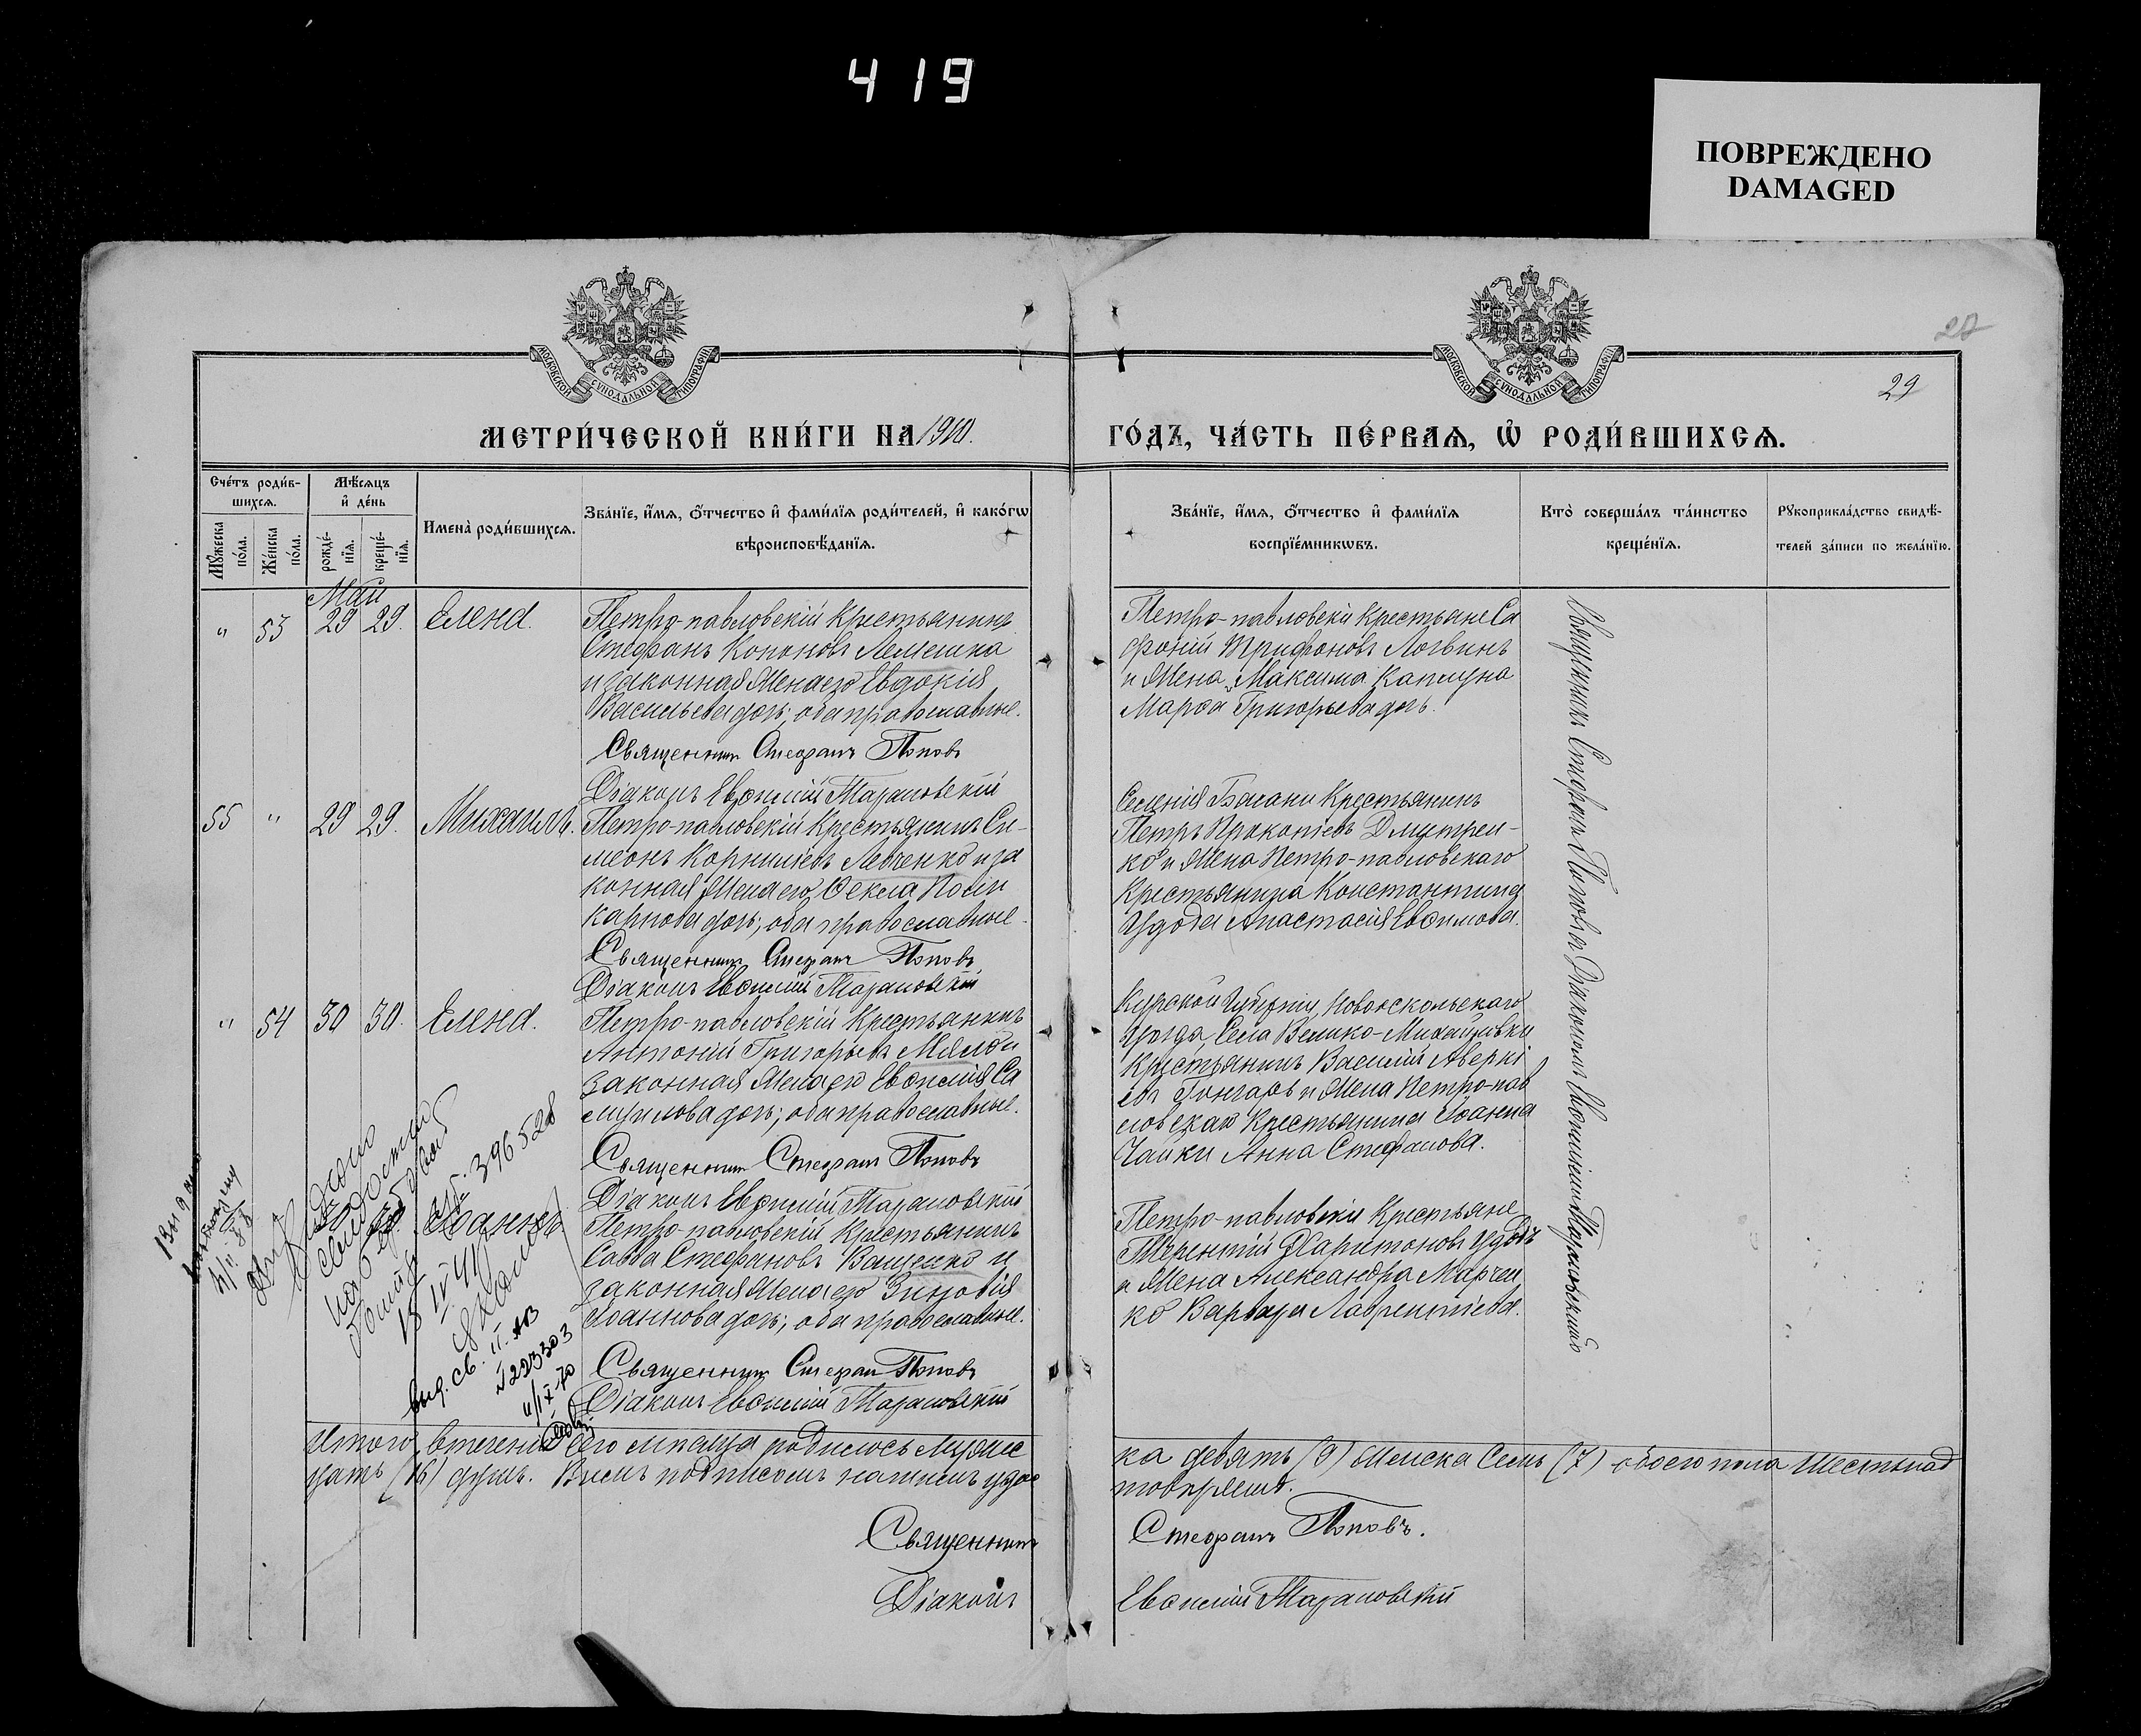 419
ПОВРЕЖДЕНО
DAMAGED
МОСКОВСКОЙ СѴНОДАЛЬНОЙ ТИПОГРАФІИ
МОСКОВСКОЙ СѴНОДАЛЬНОЙ ТИПОГРАФІИ
29
МЕТРИ́ЧЕСКОЙ КНИ́ГИ НА 1910.
ГО́ДЪ, ЧА́СТЬ ПЕ́РВАѦ, Ѡ҆ РОДИ́ВШИХСѦ.
Сче́тъ роди́в-
шихсѧ.
Мꙋ́жеска по́ла.
Же́нска по́ла.
Мѣ́сѧцъ
и҆ де́нь
рожде́-
нїѧ.
креще́-
нїѧ.
Имена̀ роди́вшихсѧ.
Зва́нїе, и҆́мѧ, ѻ҆́тчество и҆ фами́лїѧ роди́телей, и҆ како́гѡ
вѣроисповѣ́данїѧ.
Зва́нїе, и҆́мѧ, ѻ҆́тчество и҆ фами́лїѧ
воспрїе́мникѡвъ.
Кто̀ соверша́лъ та́инство
креще́нїѧ.
Рꙋкоприкла́дство свидѣ́-
телей за́писи по жела́нїю.
Май
" 53 29 29. Елена.
Петро-павловскій Крестьянинъ
Стефанъ Кононовъ Лемешка
и законная жена его Евдокія
Васильева дочь; оба православные.
Священникъ Стефанъ Поповъ
Діаконъ Евѳимій Тарановскій
Петро-павловскіе Крестьяне Са
фоній Трифоновъ Логвинъ
и жена Максима Капцуна
Марѳа Григорьева дочь.
55 " 29 29. Михаилъ.
Петро-павловскій Крестьянинъ Си-
меонъ Корниліевъ Левченко и за
конная жена его Ѳекла Поли
карпова дочь; оба православные.
Священникъ Стефанъ Поповъ
Діаконъ Евѳимій Тарановскій
Селенія Крестьянинъ
Петръ Прокопіевъ Дмитрен-
ко и жена Петро-павловскаго
Крестьянина Константина
Удода Анастасія Евѳимова.
" 54 30 30. Елена.
Петро-павловскій Крестьянинъ
Антоній Григорьевъ и
законная жена его Евѳимія Са
муилова дочь; оба православные.
Священникъ Стефанъ Поповъ
Діаконъ Евѳимій Тарановскій
Курской Губерніи, Новооскольскаго
Уезда, Села Велико-Михайловки
Крестьянинъ Василій Аверкі
евъ Гончаръ и жена Петро-пав
ловскаго Крестьянина Іоанна
Чайки Анна Стефанова.
Іоаннъ.
Петро-павловскій Крестьянинъ
Савва Стефановъ Ващенко и
законная жена его Зиновія
Іоаннова дочь; оба православные.
Священникъ Стефанъ Поповъ
Діаконъ Евѳимій Тарановскій
Петро-павловскіе Крестьяне
Терентій Харитоновъ Удодъ
и жена Александра Марчен
ко Варвара Лаврентіева.
Священникъ Стефанъ Поповъ и Діаконъ Евѳимій Тарановскій
396528
18 IV 41
выд. св. II-АВ
223303
11/IX-70
Итого, втеченіи сего месяца родилось мужес
ка девять (9) женска семь (7) обоего пола шестьнад
цать (16) душъ. Въ чемъ подписомъ нашимъ удос
товеряемъ.
Священникъ Стефанъ Поповъ.
Діаконъ Евѳимій Тарановскій